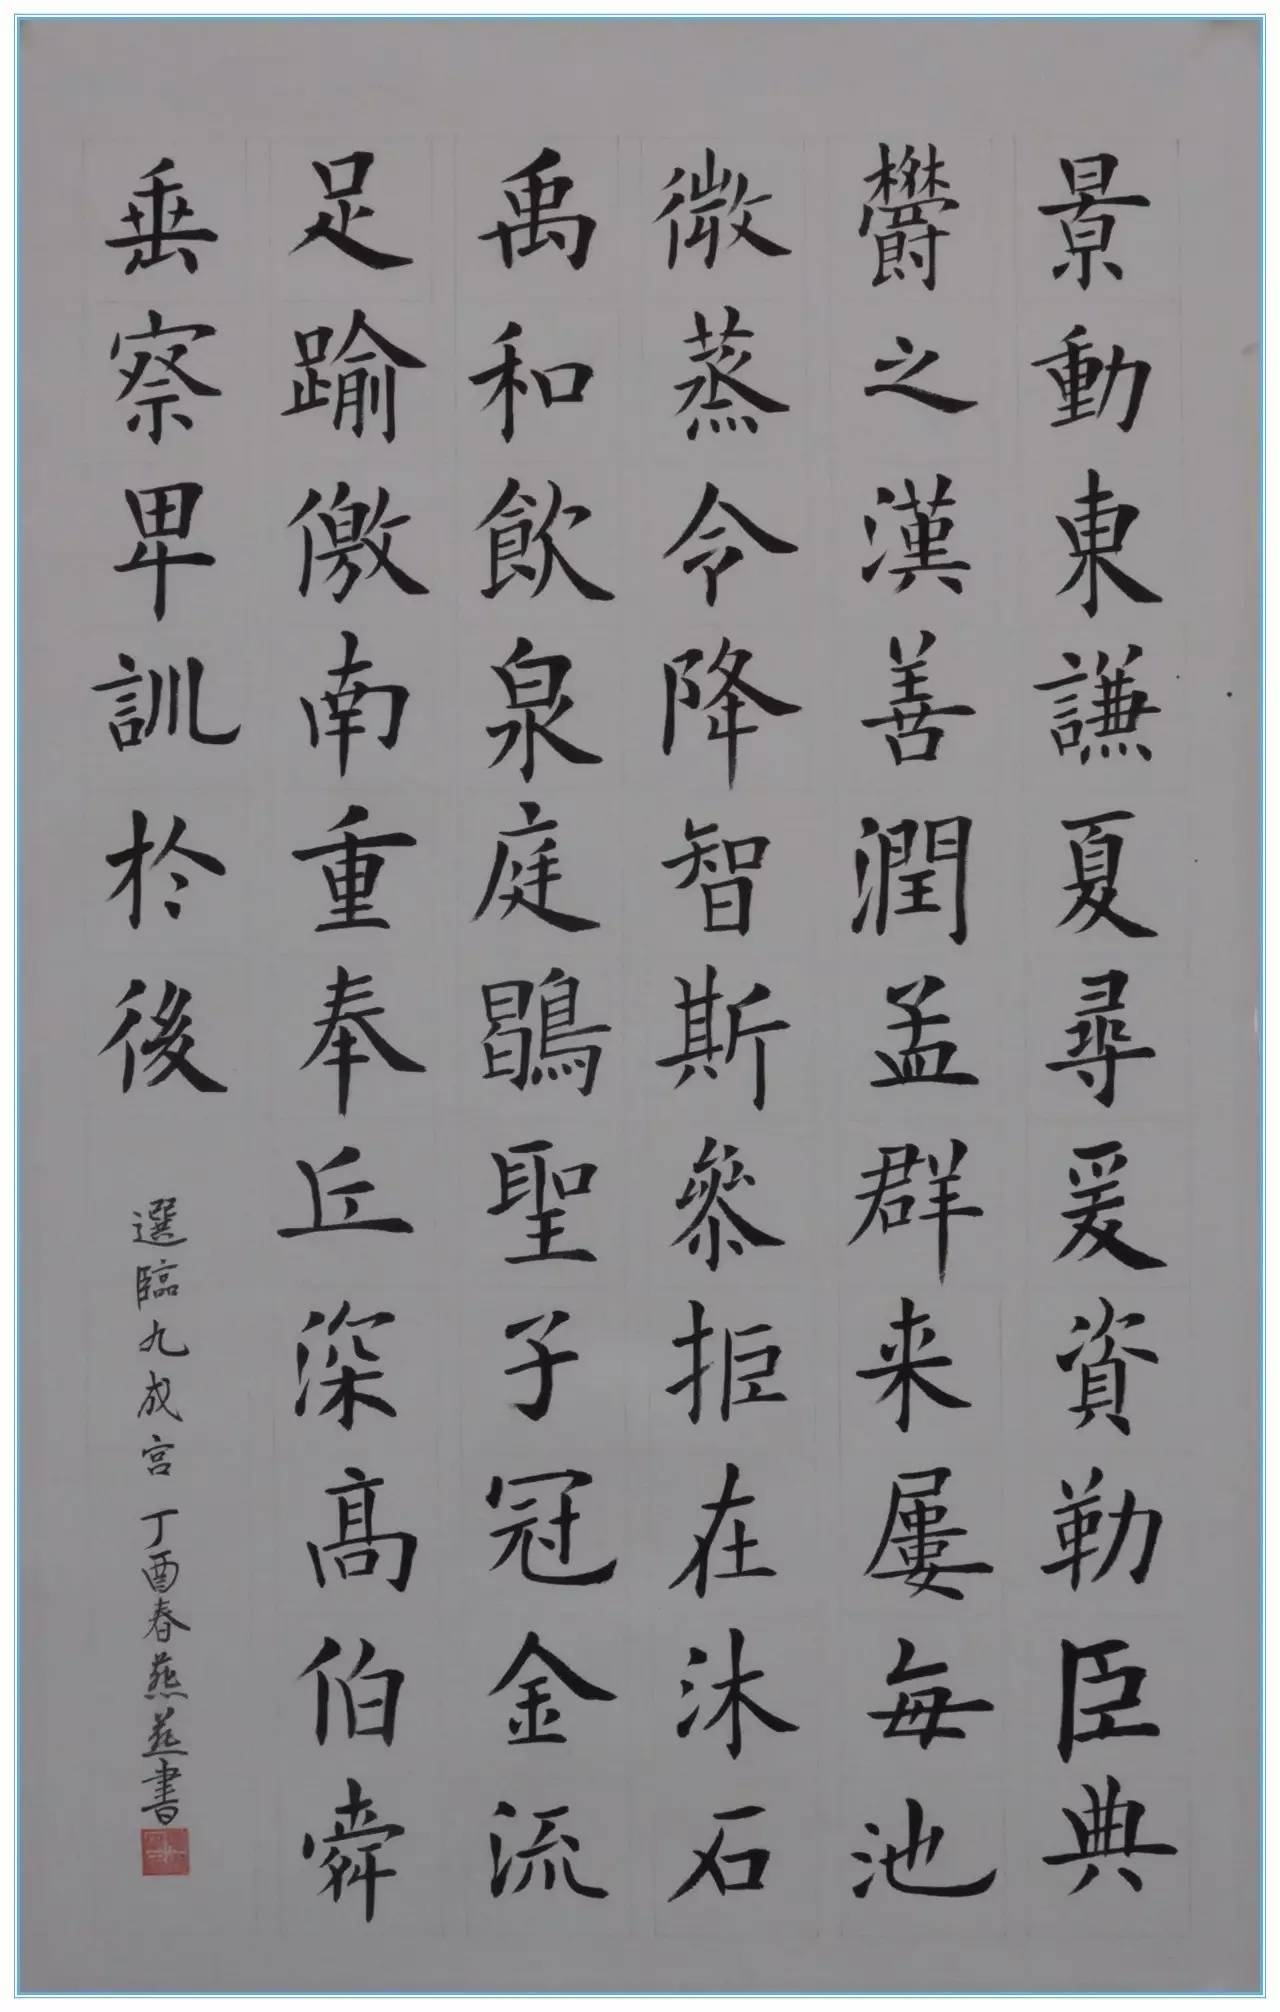 景動東謙夏尋爰資勒臣典
欝之漢善潤孟群来屢每池
微蒸令降智斯叅拒在沐石
禹和飲泉庭鶡聖子冠金流
足踰儌南重奉丘深髙伯舜
垂察卑訓於後
選臨九成宮 丁酉春燕燕書